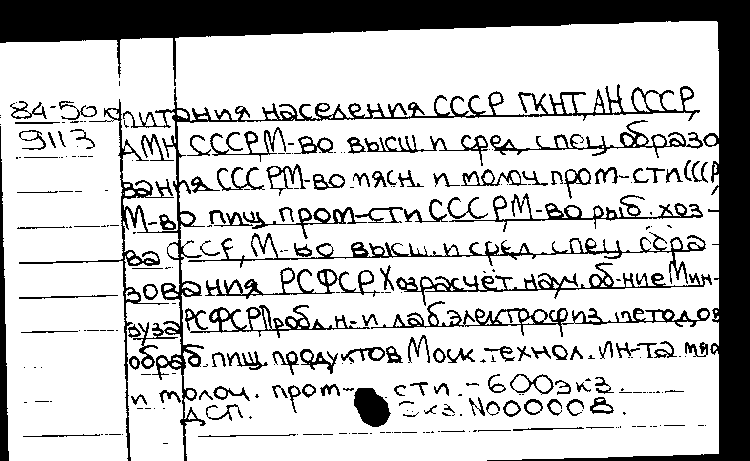 84-50к питания населения СССР ГКНТ, АН СССР,
9113 АМН СССР, М-во высш. и сред. спец. образо
вания СССР, М-во мясн. и молоч. пром-сти СССР
М-во пищ. пром-сти СССР, М-во рыб. хоз-
ва СССР, М-во высш. и сред. спец. обра-
зования РСФСР, Хозрасчёт. науч. об-ние Мин-
вуза РСФСР, Пробл. н.-и. лаб. электрофиз. методов
обраб. пищ. продуктов Моск. технол. ин-та мяс
и молоч. пром-сти. - 600 экз.
ДСП. Экз. N000008.